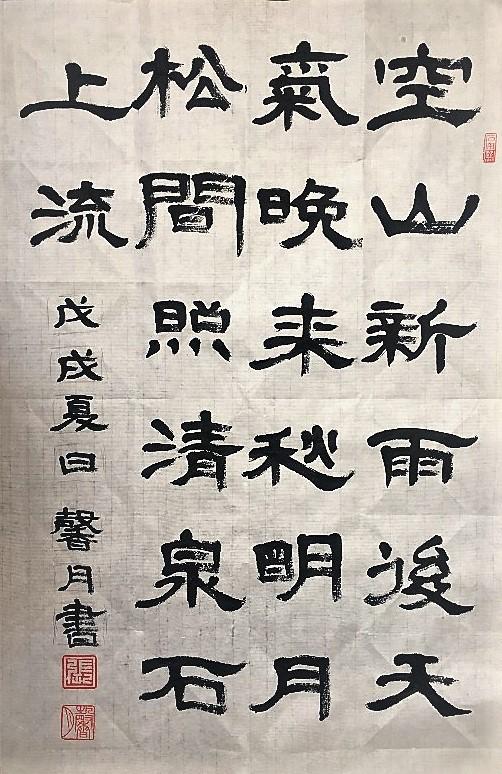 空山新雨後天
氣晚来秋明月
松間照清泉石
上流
戊戌夏日 馨月書